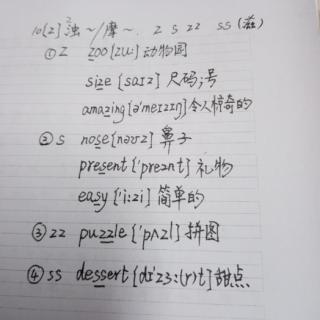 10[z] 浊~/摩~. z s zz ss (滋)
① z zoo [zu:] 动物园
size [saɪz] 尺码;号
amazing [ə'meɪzɪŋ] 令人惊奇的
② s nose [nəʊz] 鼻子
present ['preznt] 礼物
easy ['i:zi] 简单的
③ zz puzzle ['pʌzl] 拼图
④ ss dessert [dɪ'zɜ:(r)t] 甜点